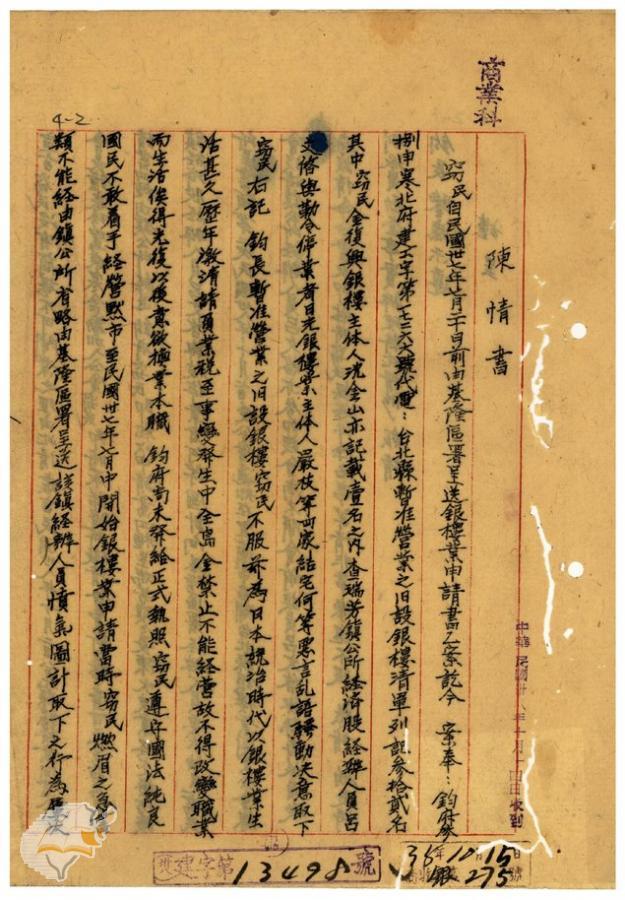 商業科
4-2
陳情書
窮民自民國卅七年七月二十日前由基隆區署呈送銀樓業申請書乙案訖今 案奉:鈞府參
捌申寒北府建工字第一七三六六號代電:台北縣暫准營業之旧設銀樓清單列記參拾貳名
其中窮民金復興銀樓主体人沈金山亦記載壹名之內查瑞芳鎮公所経済股経辦人員呂
文俻與勒令停業者日光銀樓業主体人嚴枝等両家結宅何等惡言乱語移動决意取下
窮民右記 鈞長暫准營業之旧設銀樓窮民不服并為日本統治時代以銀樓業生
活甚久歷年繳清諸頁業稅至事變發生中全島金禁止不能経營故不得改變職業
而生活俟得光復以後意欲極業本職 鈞府尚未發給正式執照窮民遵守國法純良
國民不敢着手経營黙市至民國卅七年七月中開始銀樓業申請當時窮民燃眉之急
類不能経由鎮公所省略由基隆區署呈送該鎮経辦人員憤氣圖計取下之行為
中華民國卅八年十月 日收到
建字第13498號
38年10月15日
銀275號